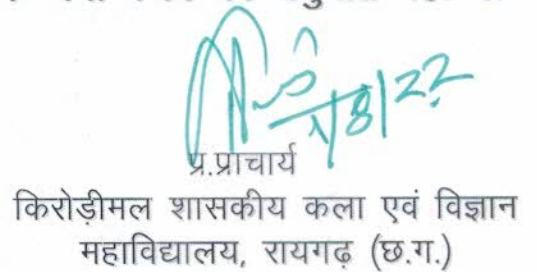 /8/22
प्र.प्राचार्य
किरोड़ीमल शासकीय कला एवं विज्ञान
महाविद्यालय, रायगढ़ (छ.ग.)